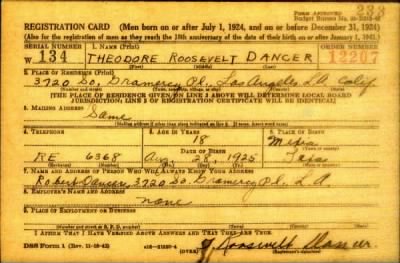 233
REGISTRATION CARD (Men born on or after July 1, 1924, and on or before December 31, 1924)
FORM APPROVED
(Also for the registration of men as they reach the 18th anniversary of the date of their birth on or after January 1, 1943.)
SERIAL NUMBER 1. NAME (Print) ORDER NUMBER
W 134 THEODORE ROOSEVELT DANCER 13207
2. PLACE OF RESIDENCE (Print)
3720 So. Gramercy Pl. Los Angeles L.A. Calif
[THE PLACE OF RESIDENCE GIVEN ON LINE 2 ABOVE WILL DETERMINE LOCAL BOARD
JURISDICTION; LINE 2 OF REGISTRATION CERTIFICATE WILL BE IDENTICAL]
3. MAILING ADDRESS
Same
4. TELEPHONE 5. AGE IN YEARS 6. PLACE OF BIRTH
18 Mexia
DATE OF BIRTH
RE 6368 Aug. 28, 1925 Texas
7. NAME AND ADDRESS OF PERSON WHO WILL ALWAYS KNOW YOUR ADDRESS
Robert Dancer, 3720 So. Gramercy Pl. L.A.
8. EMPLOYER'S NAME AND ADDRESS
none
9. PLACE OF EMPLOYMENT OR BUSINESS
I AFFIRM THAT I HAVE VERIFIED ABOVE ANSWERS AND THAT THEY ARE TRUE.
DSS Form 1 (OVER) Roosevelt Dancer